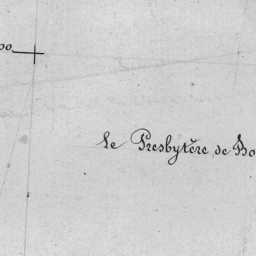 00
Le Presbytère de Bo